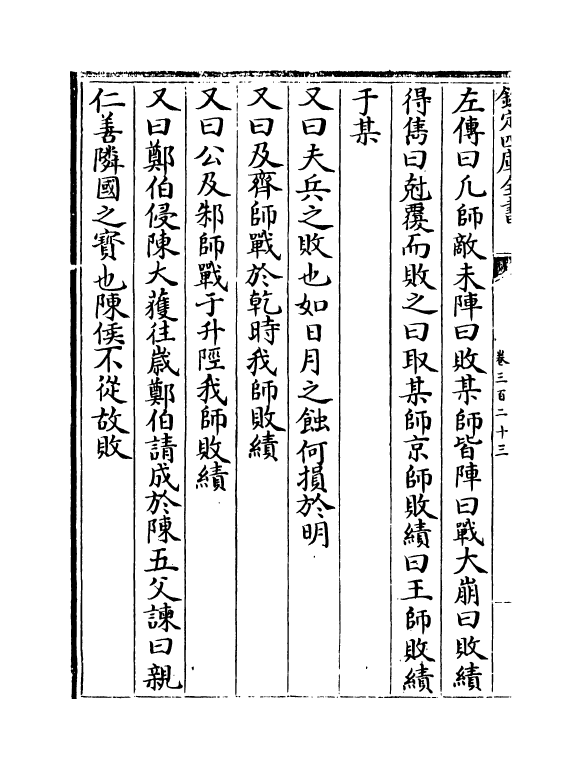 欽定四庫全書
卷三百二十三
左傳曰凡師敵未陣曰敗某師皆陣曰戰大崩曰敗績
得雋曰尅覆而敗之曰取某師京師敗績曰王師敗績
于某
又曰夫兵之敗也如日月之蝕何損於明
又曰及齊師戰於乾時我師敗績
又曰公及邾師戰于升陘我師敗績
又曰鄭伯侵陳大獲往嵗鄭伯請成於陳五父諫曰親
仁善隣國之寳也陳侯不從故敗